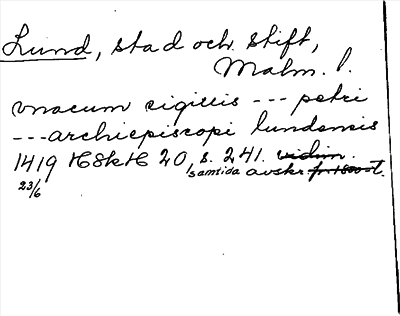 Lund, stad och stift,
Malm. l.
vnacum sigillis --- petri
--- archiepiscopi lundensis
1419 HSkH 20, s. 241. vidim.
23/6 samtida avskr fr. 1800-t.